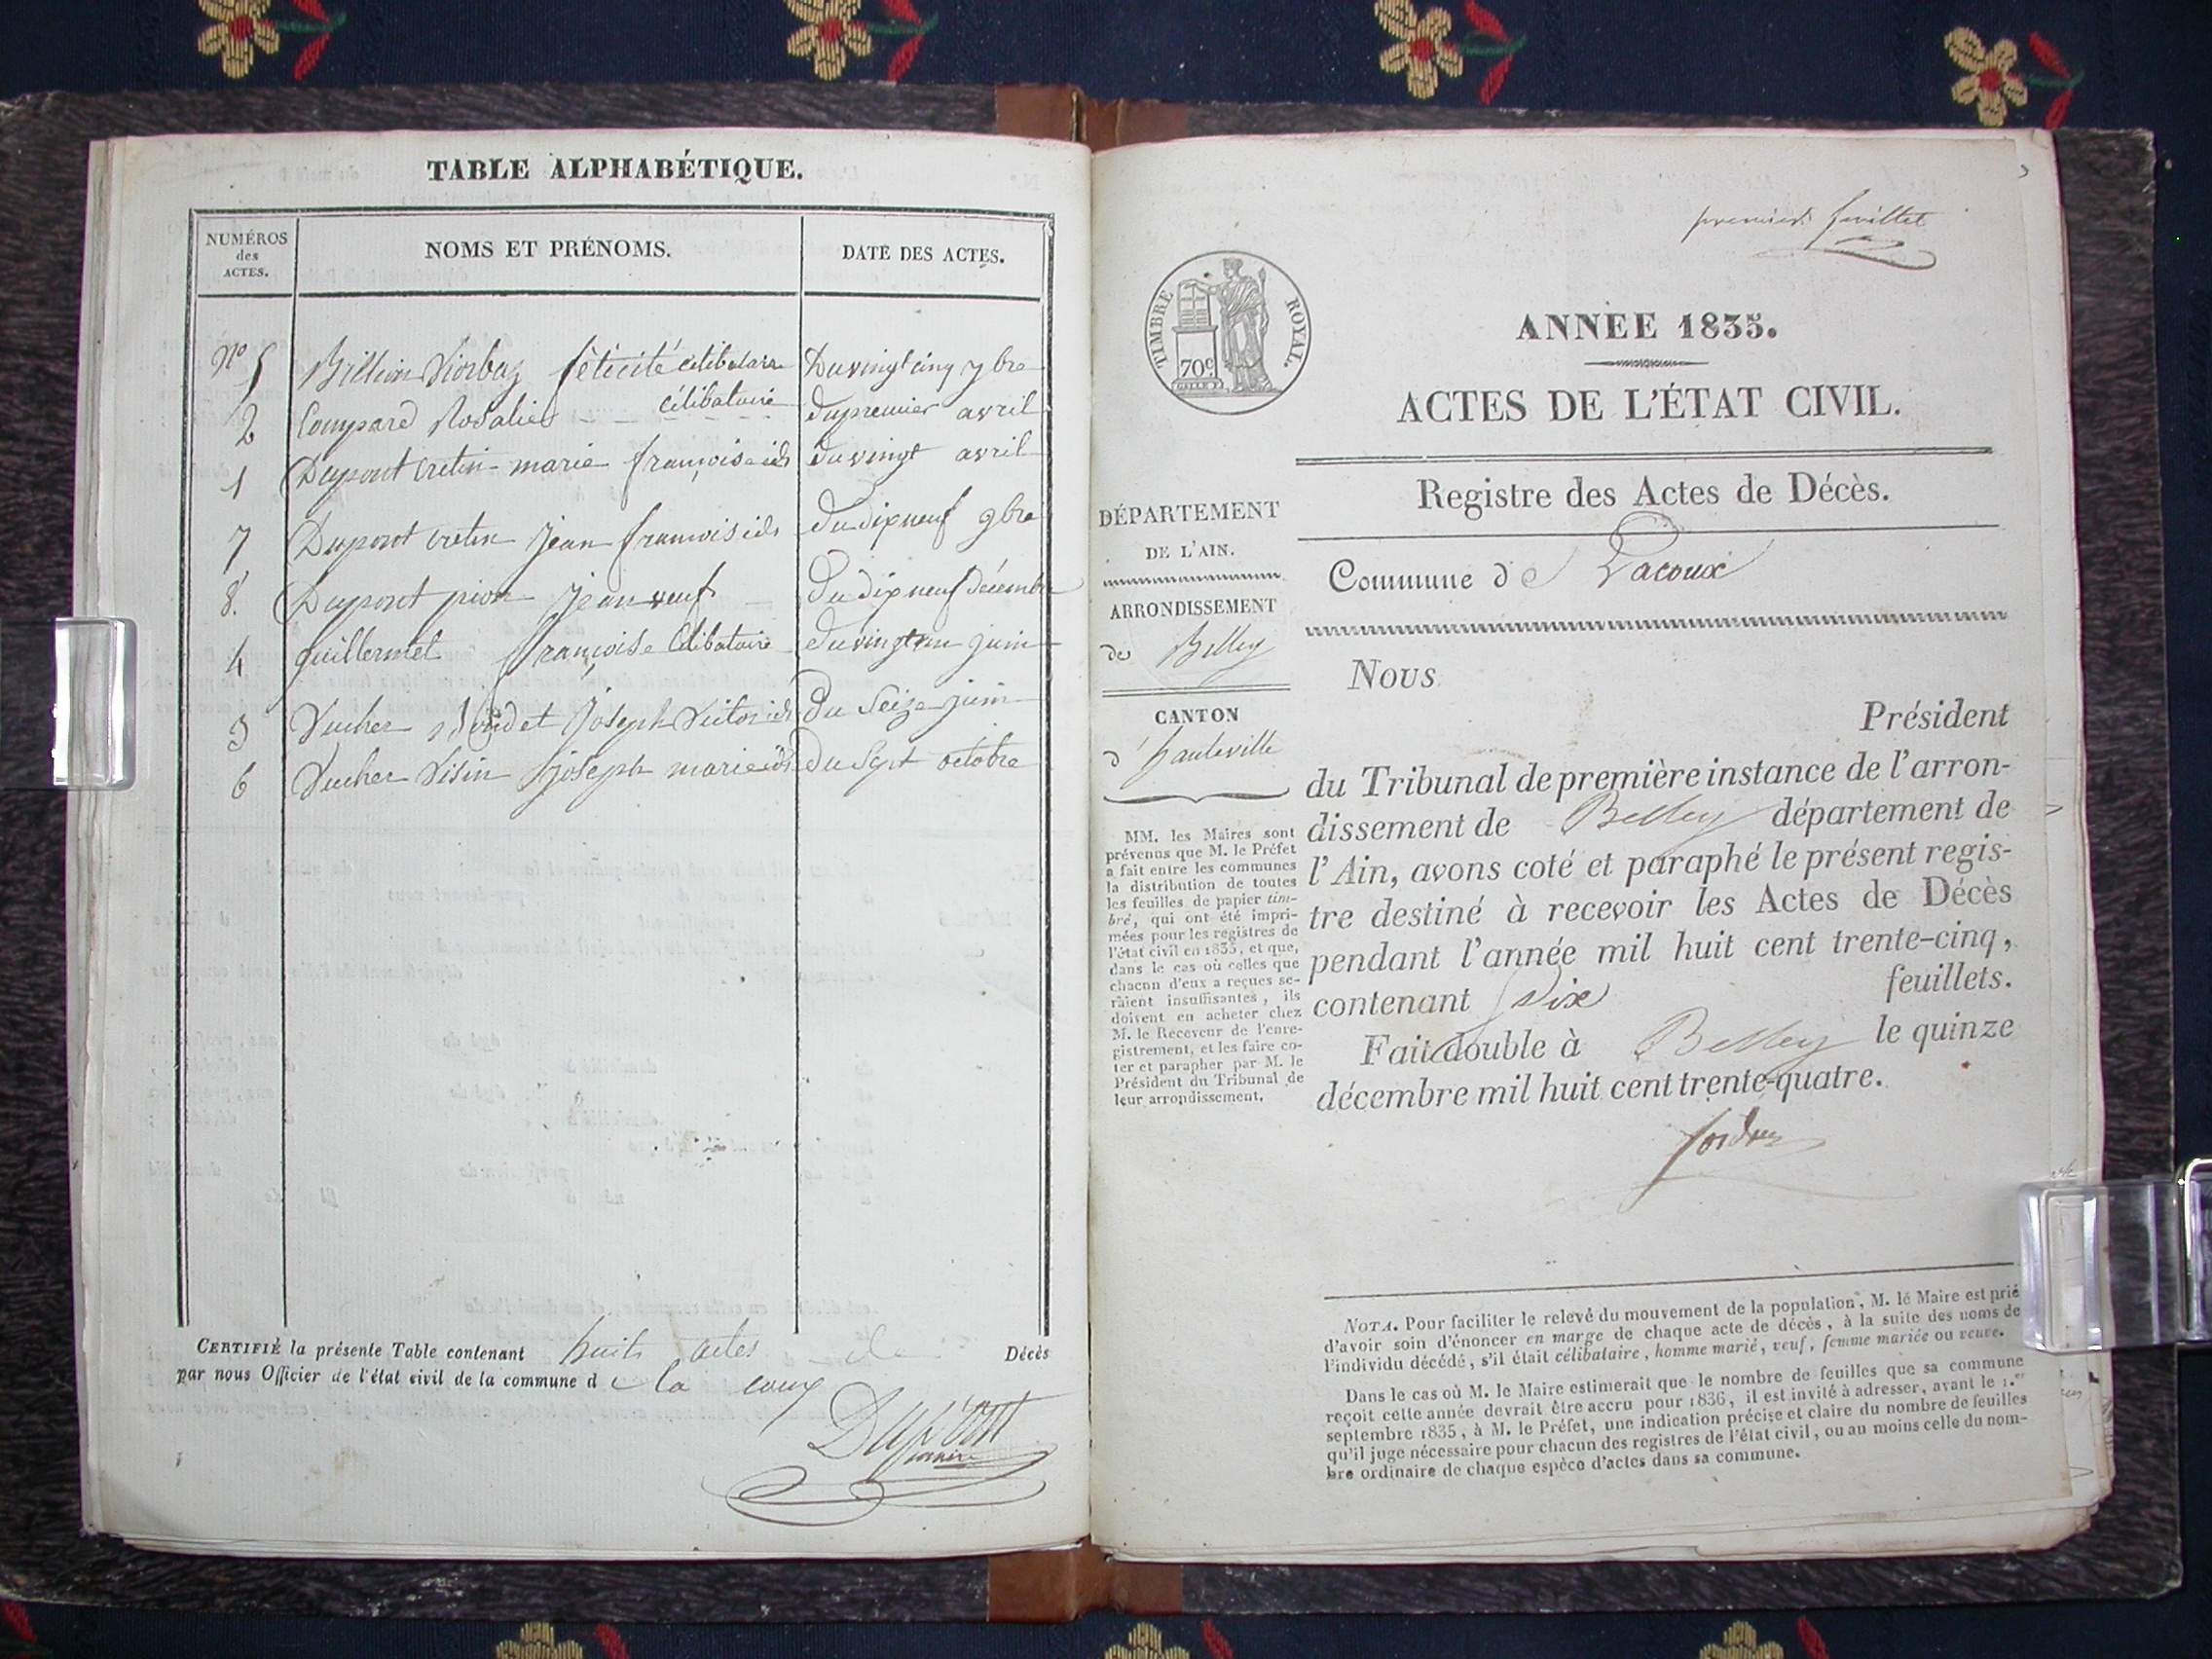 TABLE ALPHABÉTIQUE.
NUMÉROS
des
ACTES.
NOMS ET PRÉNOMS.
DATE DES ACTES.
N° 5 félicité célibataire Du vingt cinq 7bre
2 Compard Rosalie célibataire du premier avril
1 Dupont cretin marie françoise id du vingt avril
7 Dupont cretin jean françois id du dix neuf 9bre
8. Dupont jean veuf Du dix neuf décembre
4 guillermet françoise célibataire du vingt juin
3 Vucher Joseph Victor id Du Seize juin
6 Vucher Joseph marie id Du Sept octobre
CERTIFIÉ la présente Table contenant huit actes de Décès
par nous Officier de l'état civil de la commune de la coux
DUPONT
maire
premier feuillet
TIMBRE ROYAL.
70c
ANNÉE 1835.
ACTES DE L'ÉTAT CIVIL.
Registre des Actes de Décès.
Commune de Lacoux
DÉPARTEMENT
DE L'AIN.
ARRONDISSEMENT
de Belley
CANTON
d'hauteville
MM. les Maires sont
prévenus que M. le Préfet
a fait entre les communes
la distribution de toutes
les feuilles de papier tim-
bré, qui ont été impri-
mées pour les registres de
l'état civil en 1835, et que,
dans le cas où celles que
chacun d'eux a reçues se-
raient insuffisantes, ils
doivent en acheter chez
M. le Receveur de l'enre-
gistrement, et les faire co-
ter et parapher par M. le
Président du Tribunal de
leur arrondissement.
Nous
Président
du Tribunal de première instance de l'arron-
dissement de Belley département de
l'Ain, avons coté et paraphé le présent regis-
tre destiné à recevoir les Actes de Décès
pendant l'année mil huit cent trente-cinq,
contenant Six feuillets.
Fait double à Belley le quinze
décembre mil huit cent trente-quatre.
NOTA. Pour faciliter le relevé du mouvement de la population, M. le Maire est prié
d'avoir soin d'énoncer en marge de chaque acte de décès, à la suite des noms de
l'individu décédé, s'il était célibataire, homme marié, veuf, femme mariée ou veuve.
Dans le cas où M. le Maire estimerait que le nombre de feuilles que sa commune
reçoit cette année devrait être accru pour 1836, il est invité à adresser, avant le 1.er
septembre 1835, à M. le Préfet, une indication précise et claire du nombre de feuilles
qu'il juge nécessaire pour chacun des registres de l'état civil, ou au moins celle du nom-
bre ordinaire de chaque espèce d'actes dans sa commune.